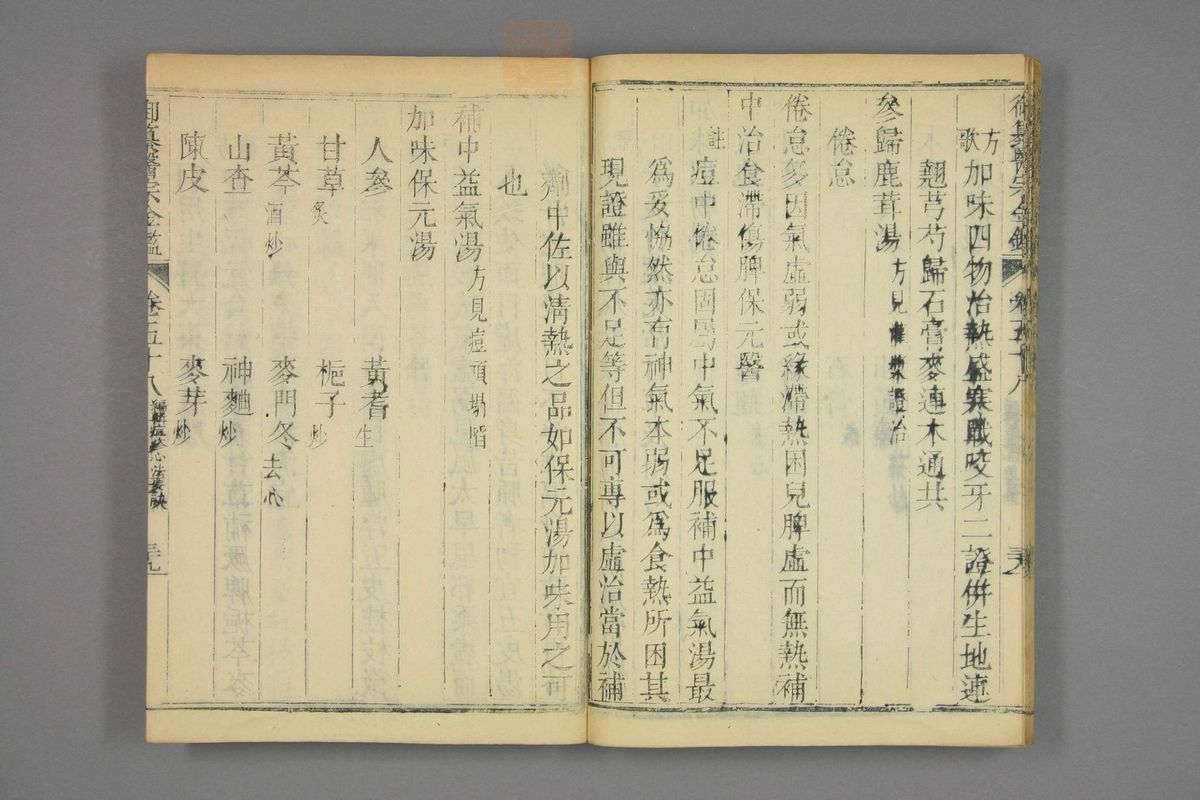 方歌 加味四物治熱盛寒戰咬牙二證併生地連
翹芎芍歸石膏麥連木通共
參歸鹿茸湯 方見寒戰證治
倦怠
倦怠多因氣虛弱或緣滯熱困兒脾虛而無熱補
中治食滯傷脾保元醫
註 痘中倦怠固屬中氣不足服補中益氣湯最
為妥恊然亦有神氣本弱或為食熱所困其
現證雖與不足等但不可專以虛治當於補
劑中佐以清熱之品如保元湯加味用之可
也
補中益氣湯 方見痘頂塌陷
加味保元湯
人參 黃耆 生
甘草 炙 梔子 炒
黃芩 酒炒 麥門冬 去心
山查 神麯 炒
陳皮 麥芽 炒
御纂醫宗金鑑 卷五十八 編輯痘疹心法要訣 三九